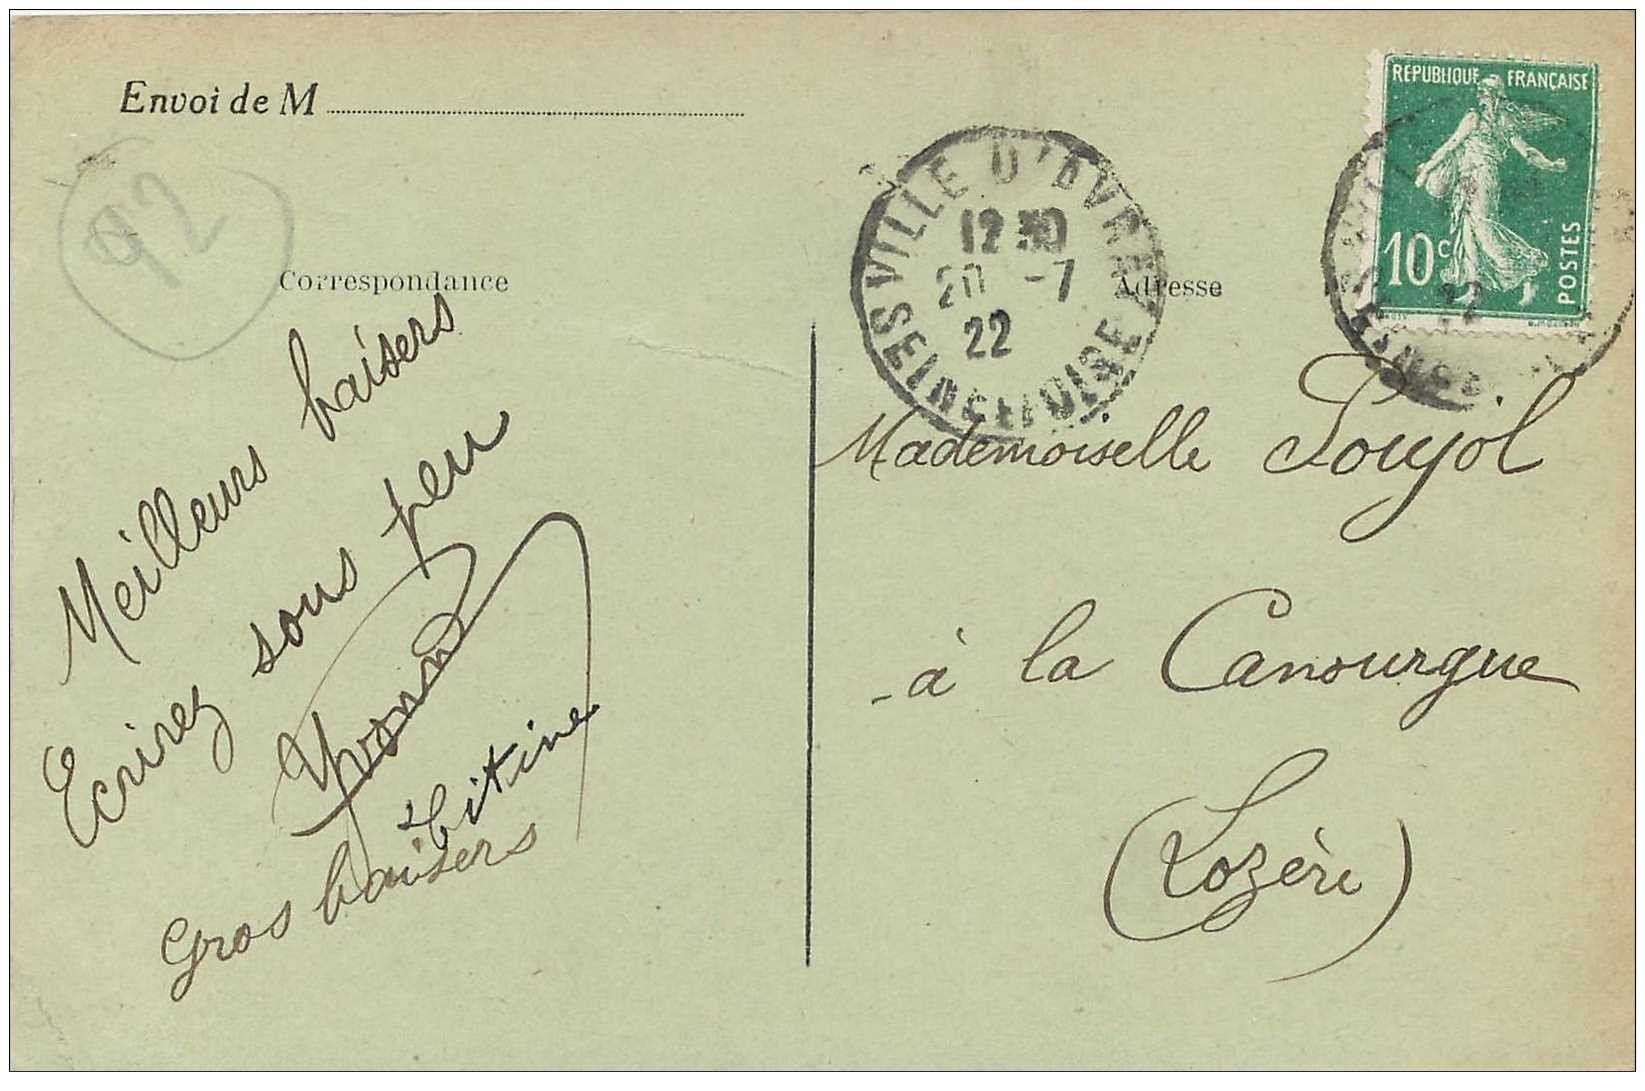 Envoi de M
92
Correspondance
Meilleurs baisers
Ecrivez sous peu
Yvonne
Titine
Gros baisers
VILLE D'AVRAY
12 30
20 -7
22
SEINE-ET-OISE
Adresse
REPUBLIQUE FRANÇAISE
10c
POSTES
22
Mademoiselle Poujol
à la Canourgue
(Lozère)